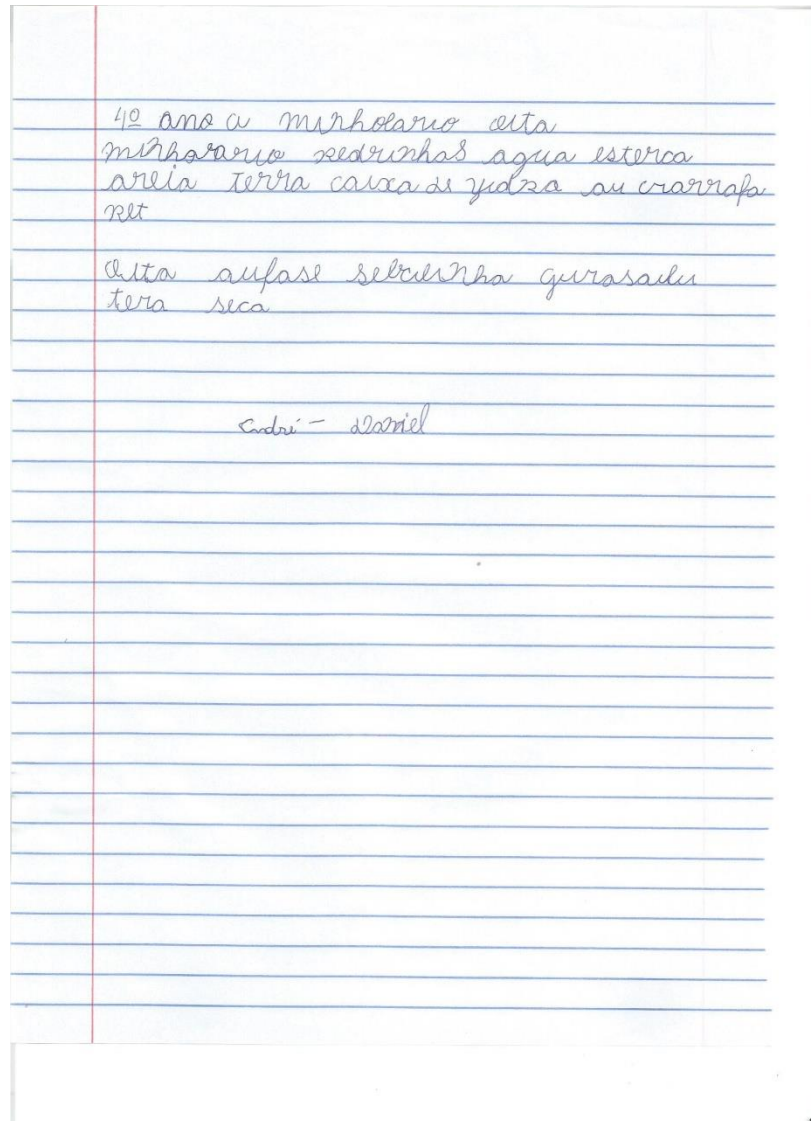 4º ano a minholario orta
minhorario pedrinhas agua esterco
areia terra caixa de vidro ou garrafa
pet
Orta aufase
tera seca
André - Daniel